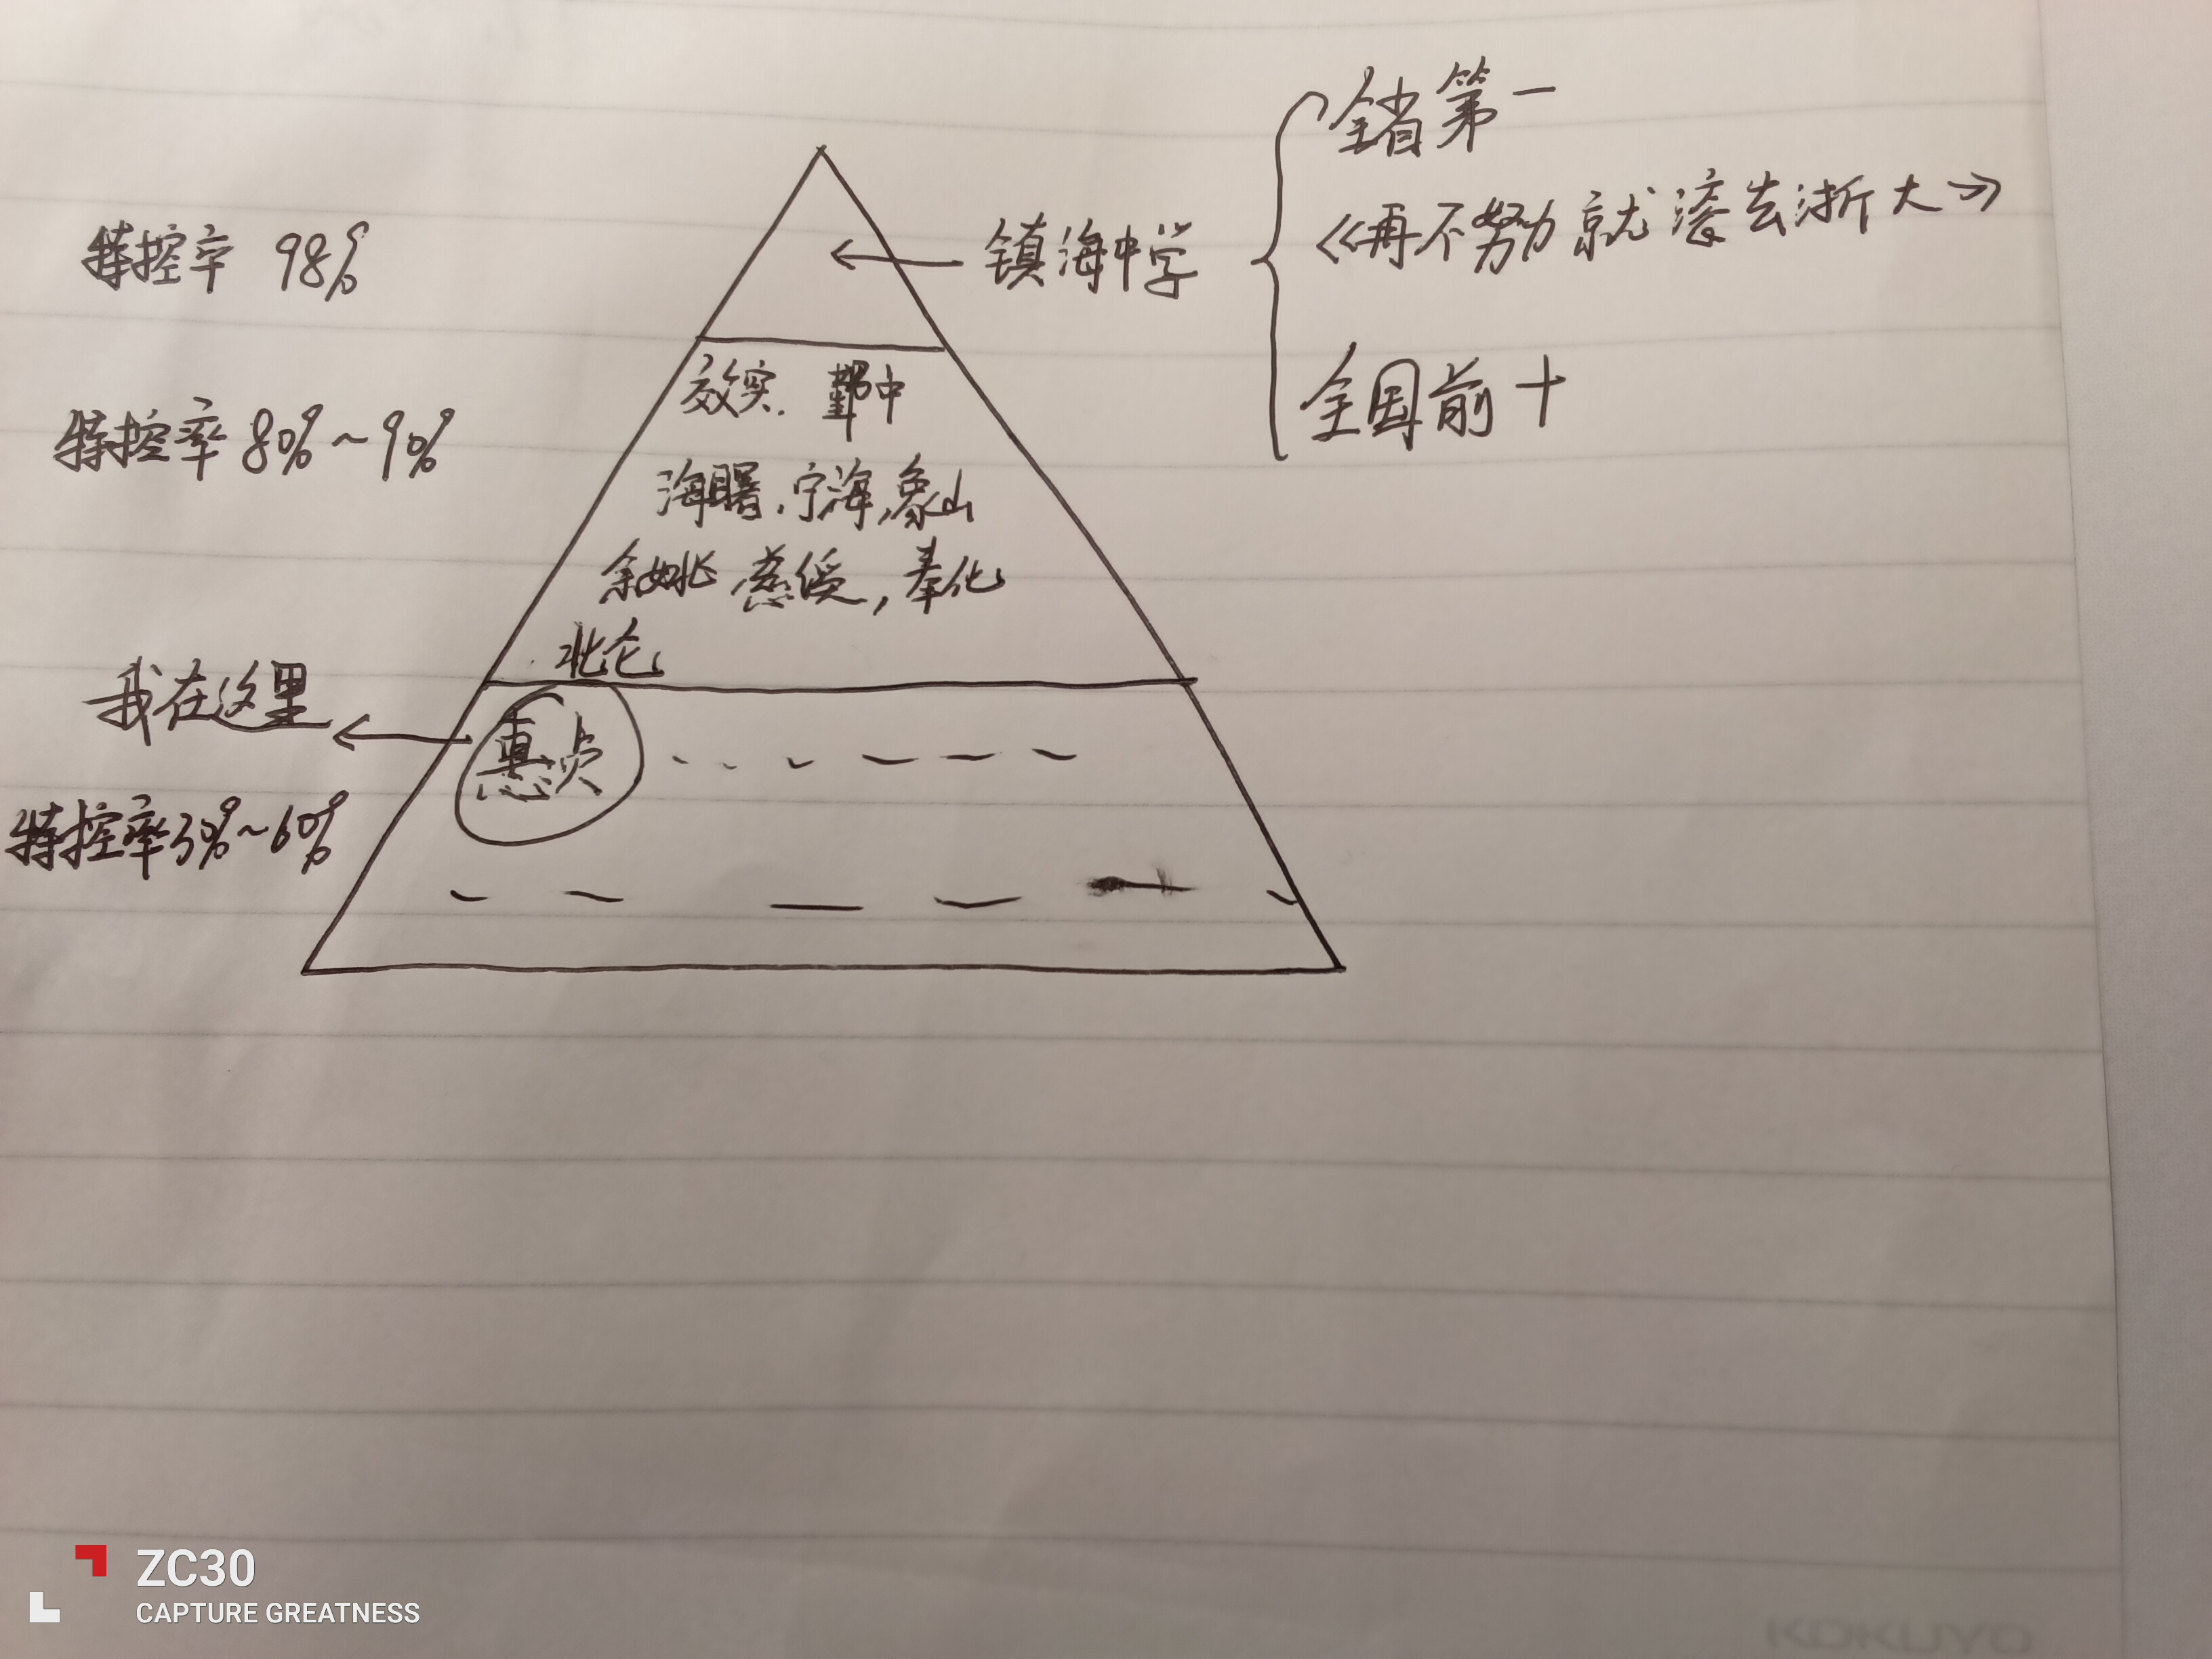 全省第一
特控率 98%
镇海中学
《再不努力就滚去浙大》
全国前十
效实. 鄞中
特控率 80%~90%
海曙. 宁海, 象山
余姚 慈溪, 奉化
北仑
我在这里
惠贞
特控率30%~60%
ZC30
CAPTURE GREATNESS
KOKUYO